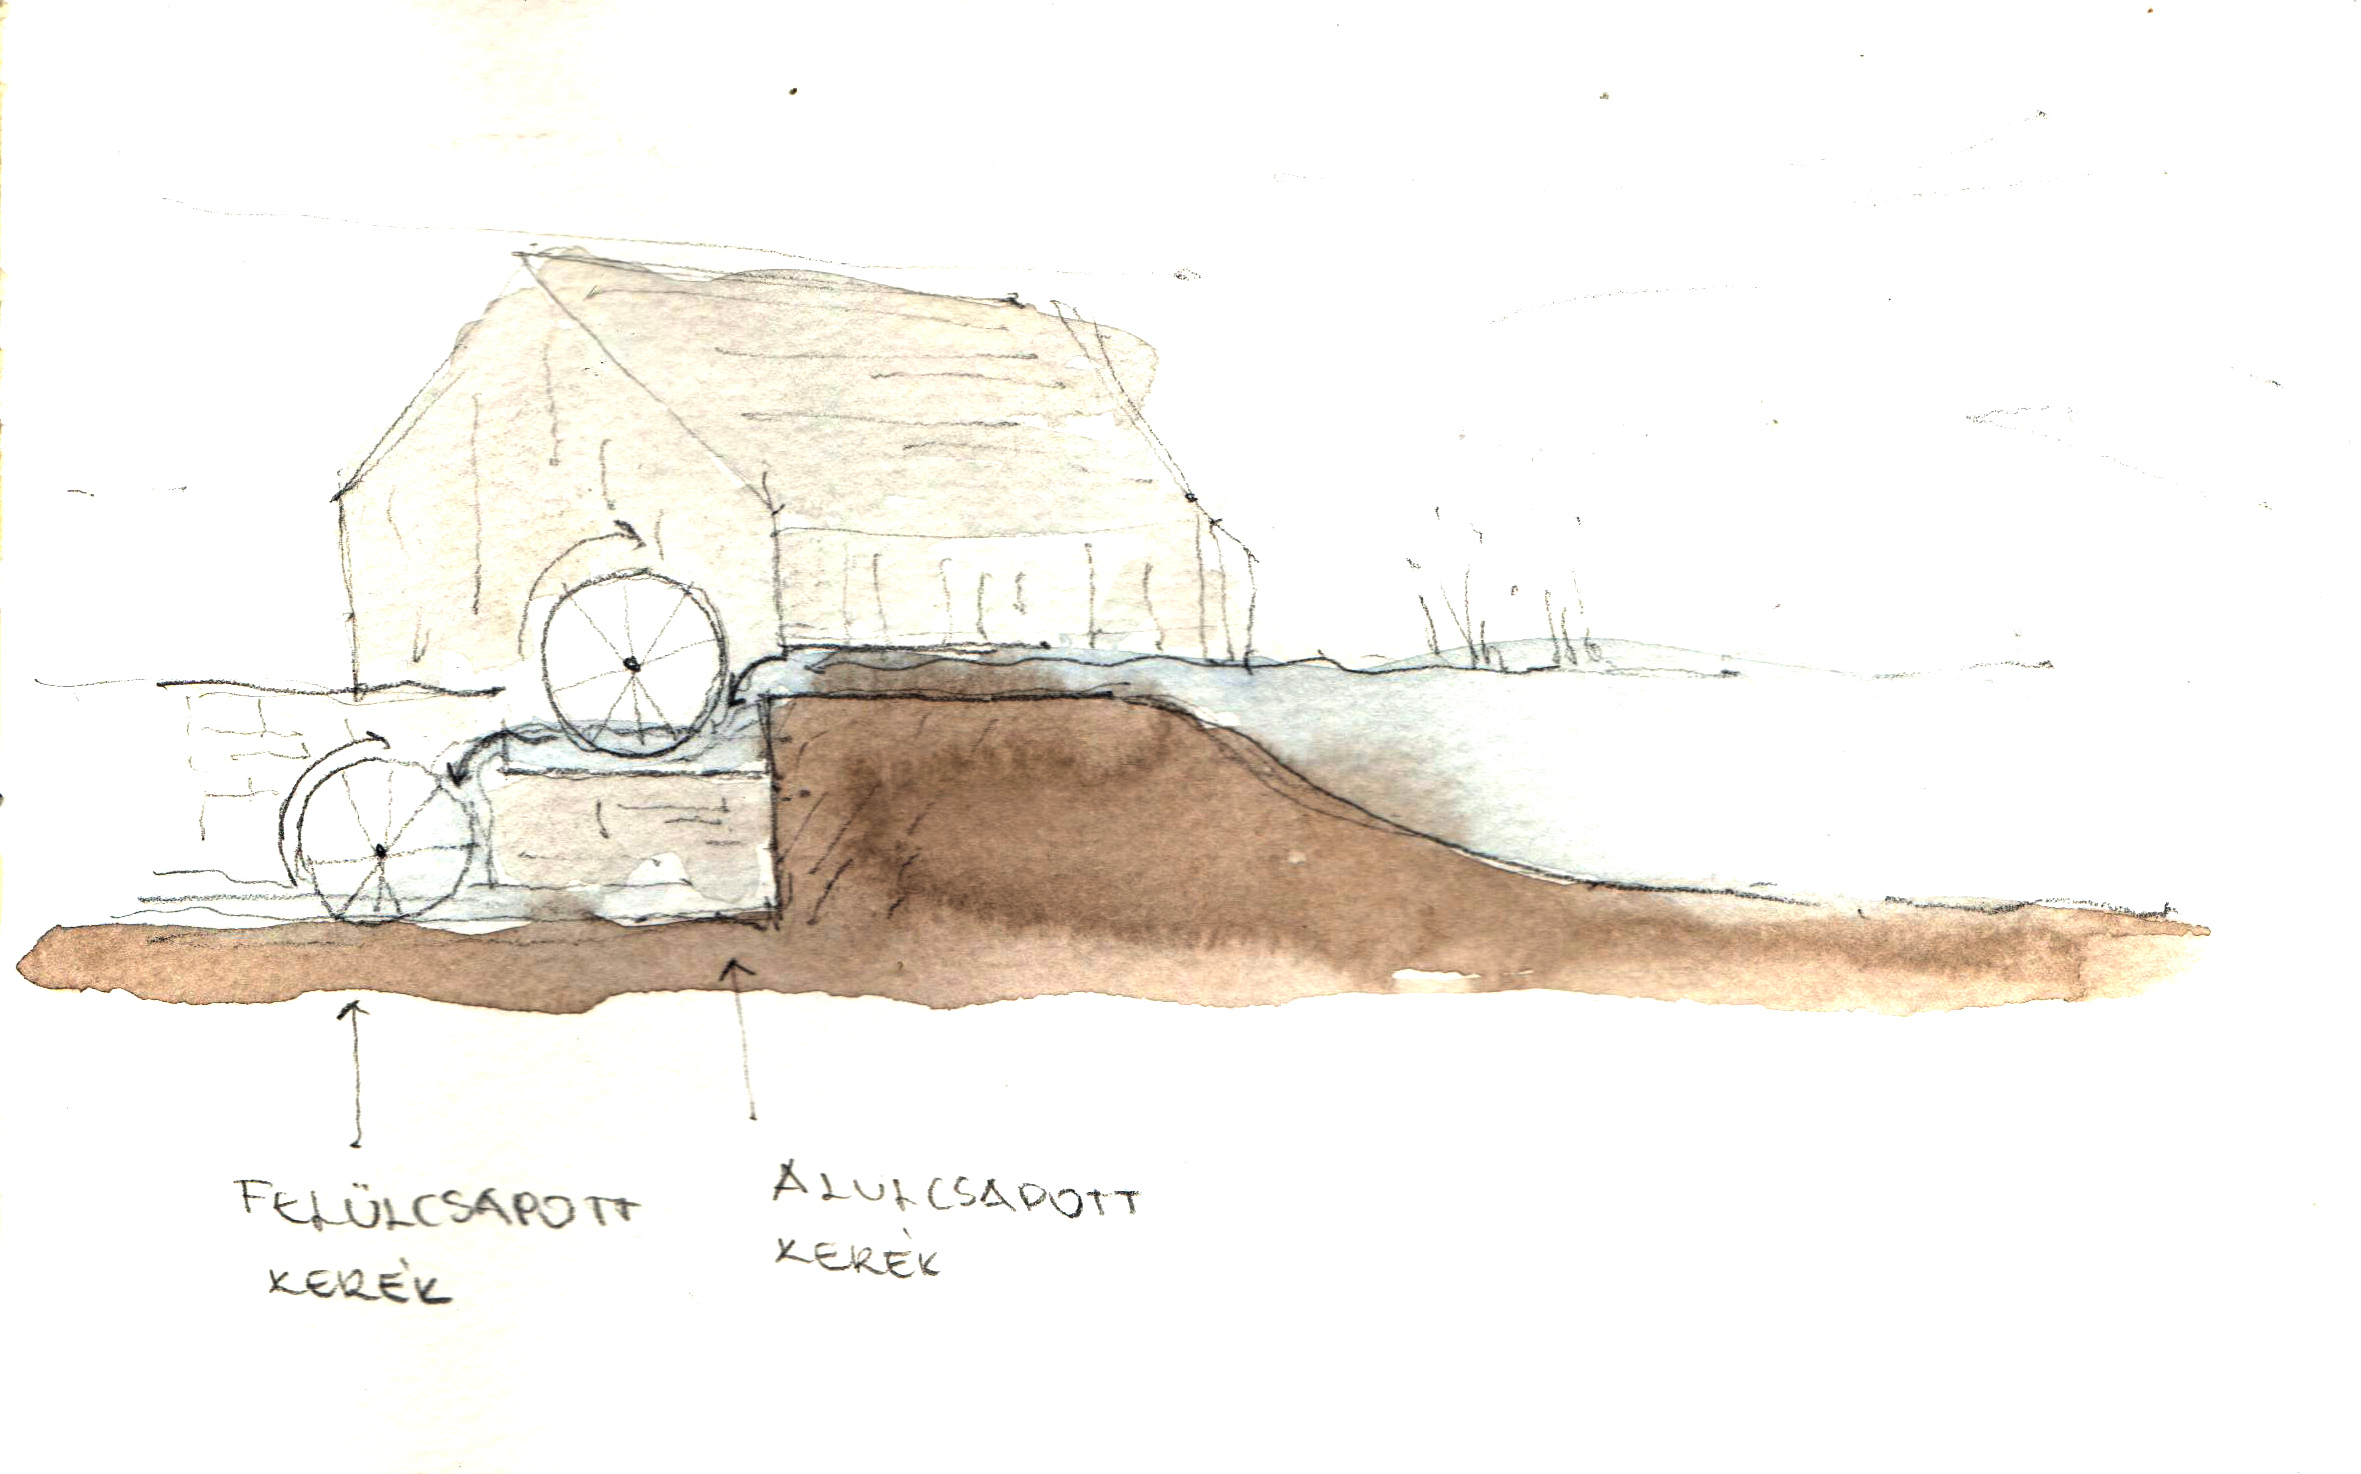 FELÜLCSAPOTT
KERÉK
ALULCSAPOTT
KERÉK